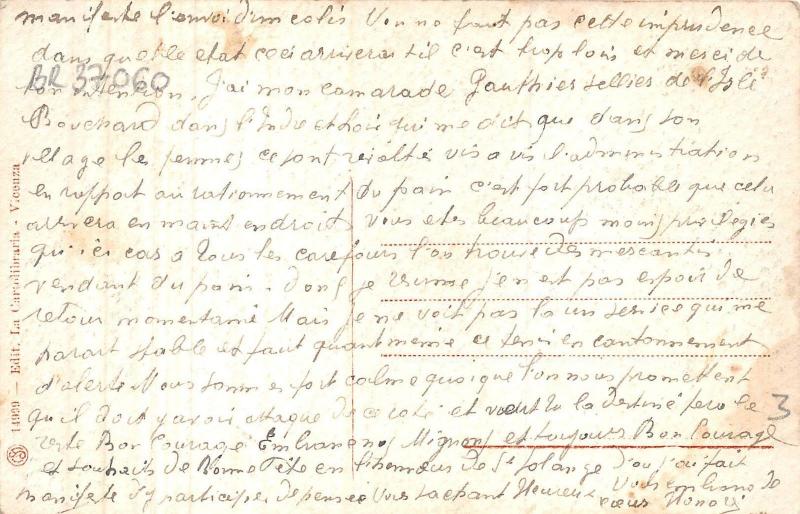 manifeste l'envoi d'un colis Von ne faut pas cette imprudence
dans quelle etat ceci arriverait il c'est trop loin et merci de
BR 37060
ton intention. J'ai mon camarade Gauthier sellier de l'Isle
Bouchard dans l'Indre et Loir qui me dit que dans son
village les femmes ce sont révolté vis a vis l'administration
en rapport au rationnement Du pain c'est fort probable que celui
arrivera en maint endroit Vous etes beaucoup moins privilegies
qu'ici car a tous les carefours l'on trouve des mercantis
vendant du pain. Donc je resume j'en est pas espoir de
retour momentané Mais je ne voit pas la un service qui me
parait stable et faut quant meme ce tenir en cantonnement
d'alerte Nous sommes fort calme quoique l'on nous promettent
qu'il doit y avoir attaque de ce coté et la destiné pour le
reste Bon Courage Mignon et toujours Bon Courage
3
et souhaits de Bonne Fête en l'honneur de Ste Solange d'ou j'ai fait
manifeste d'y participer de pensée Vous sachant Heureux Vous embrasse de
cœur Honoré
14999 — Edit. La Cartolibraria - Vicenza